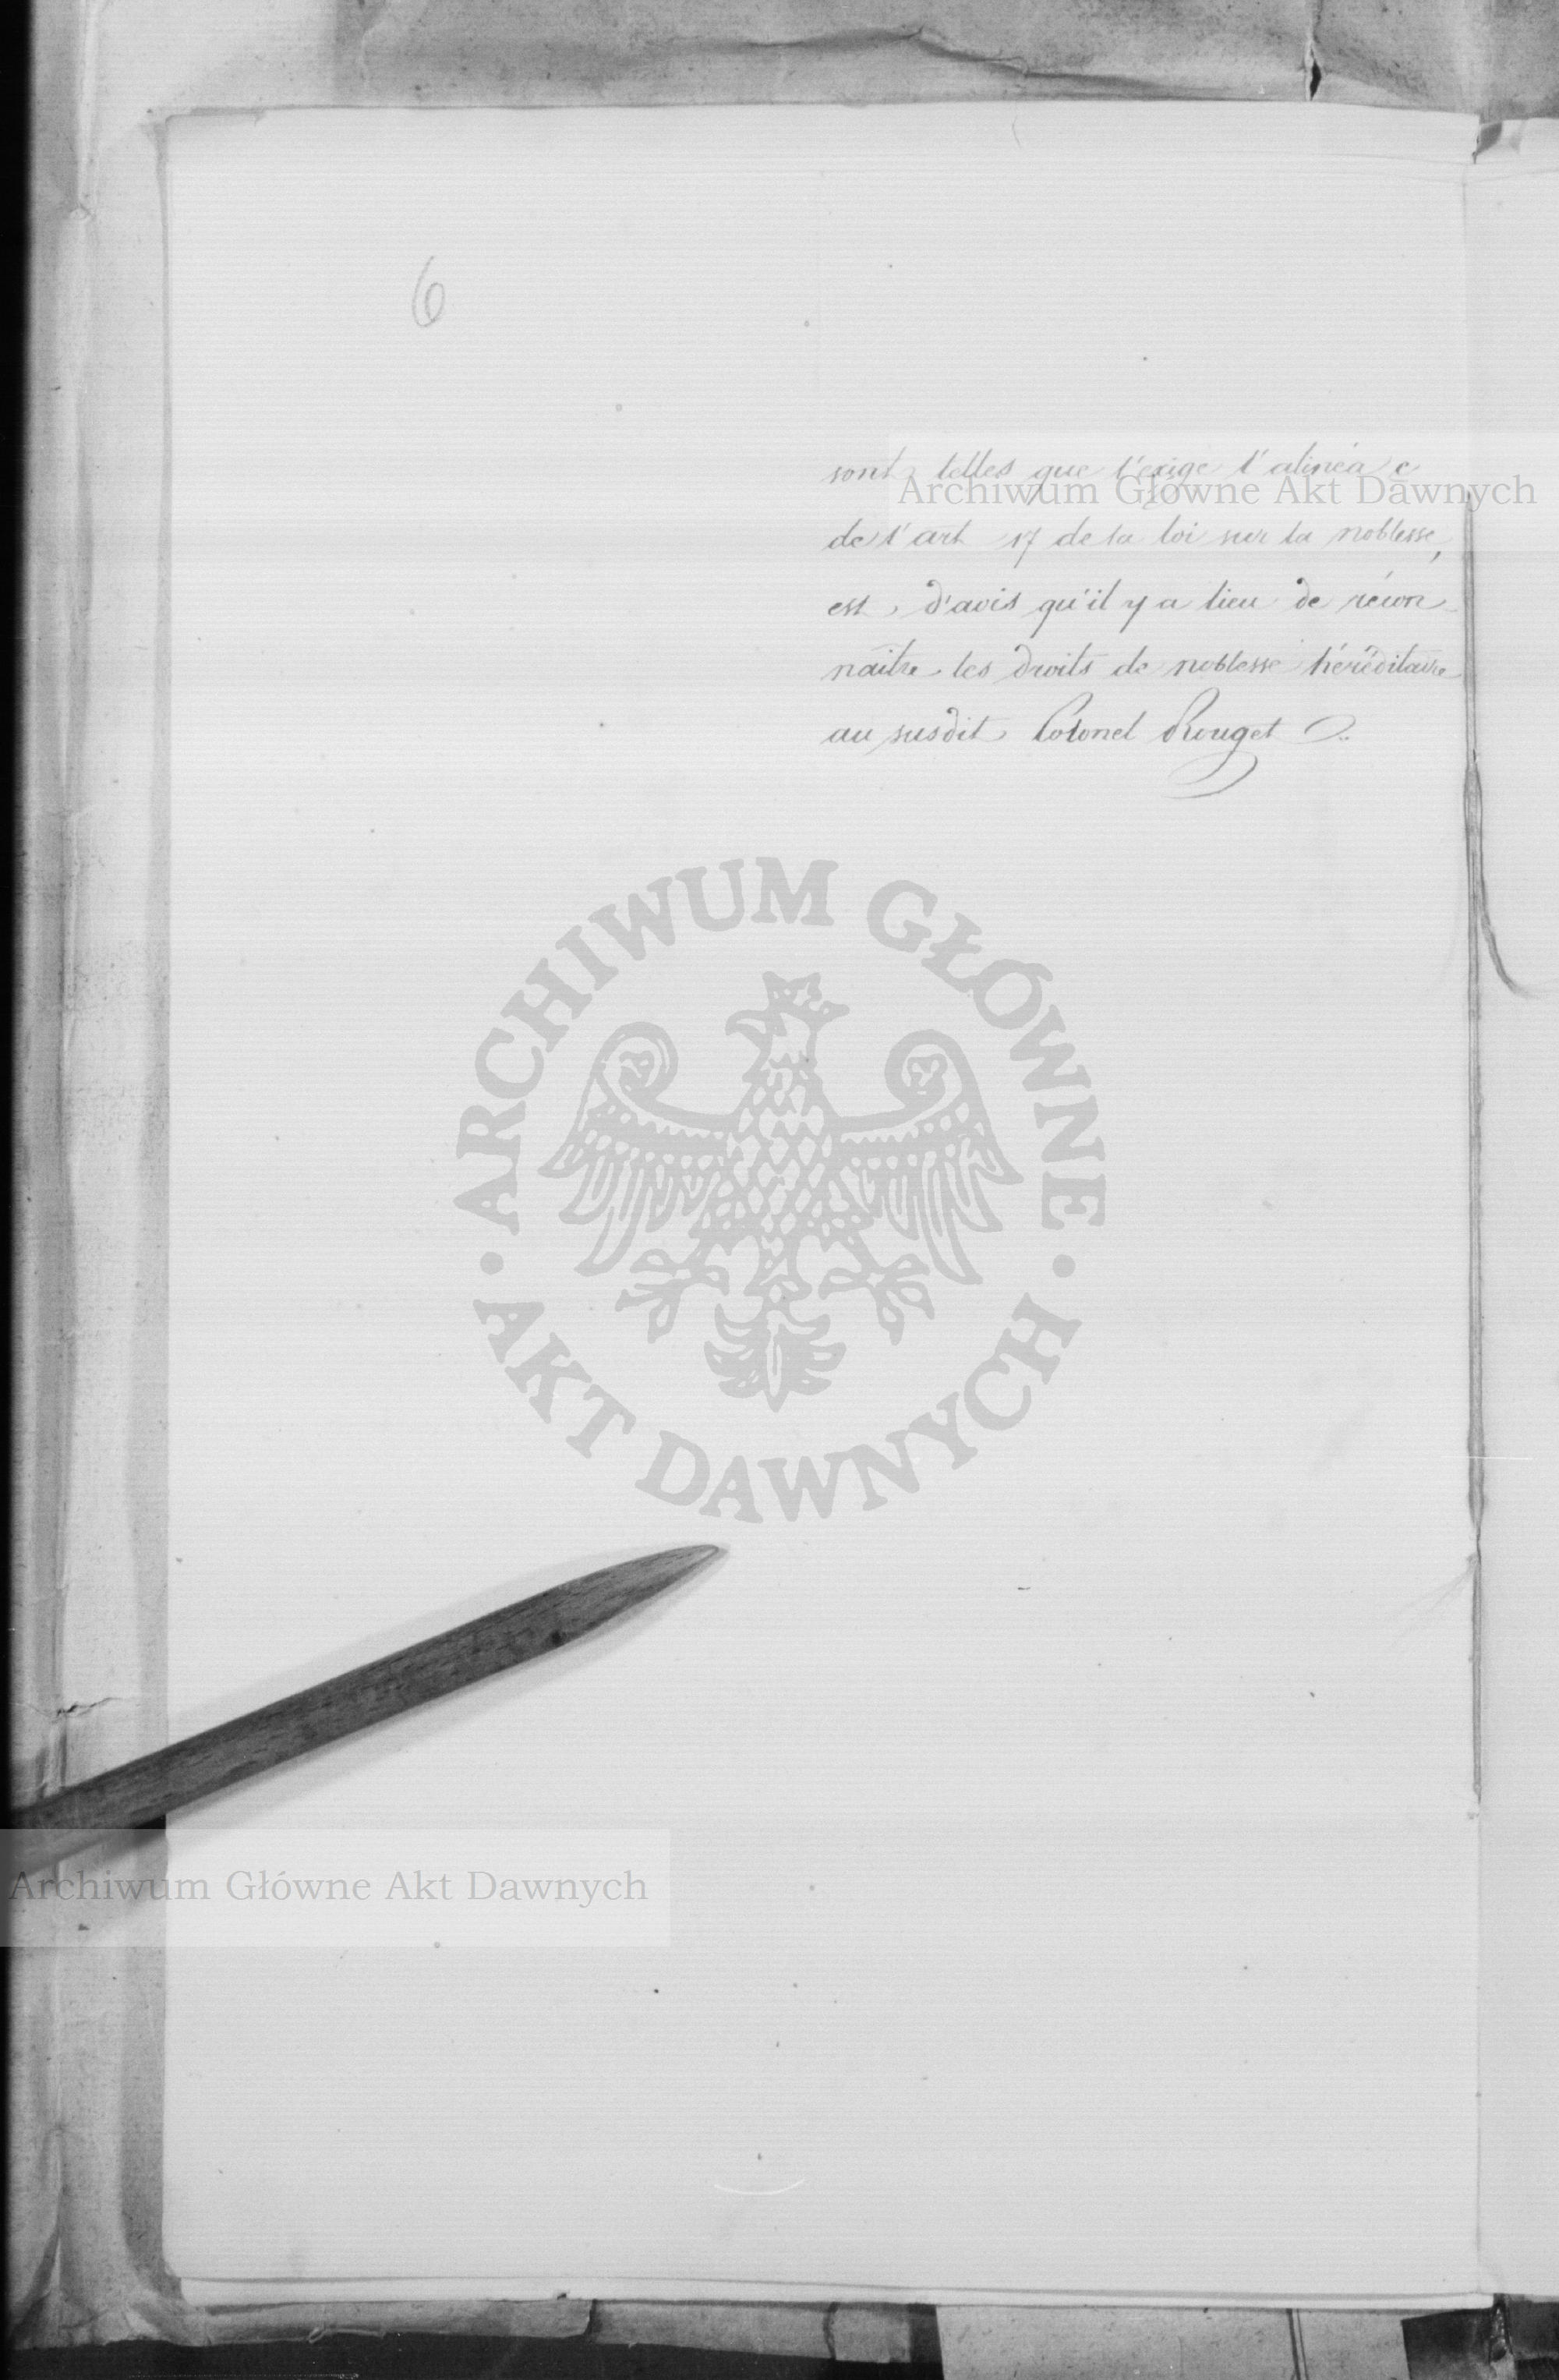 6
sont telles que l'exige l'alinéa c
Archiwum Główne Akt Dawnych
de l'art 17 de la loi sur la noblesse,
est d'avis qu'il y a lieu de récon-
naître les droits de noblesse héréditaire
au susdit Colonel Rouget
ARCHIWUM GŁÓWNE
AKT DAWNYCH
Archiwum Główne Akt Dawnych